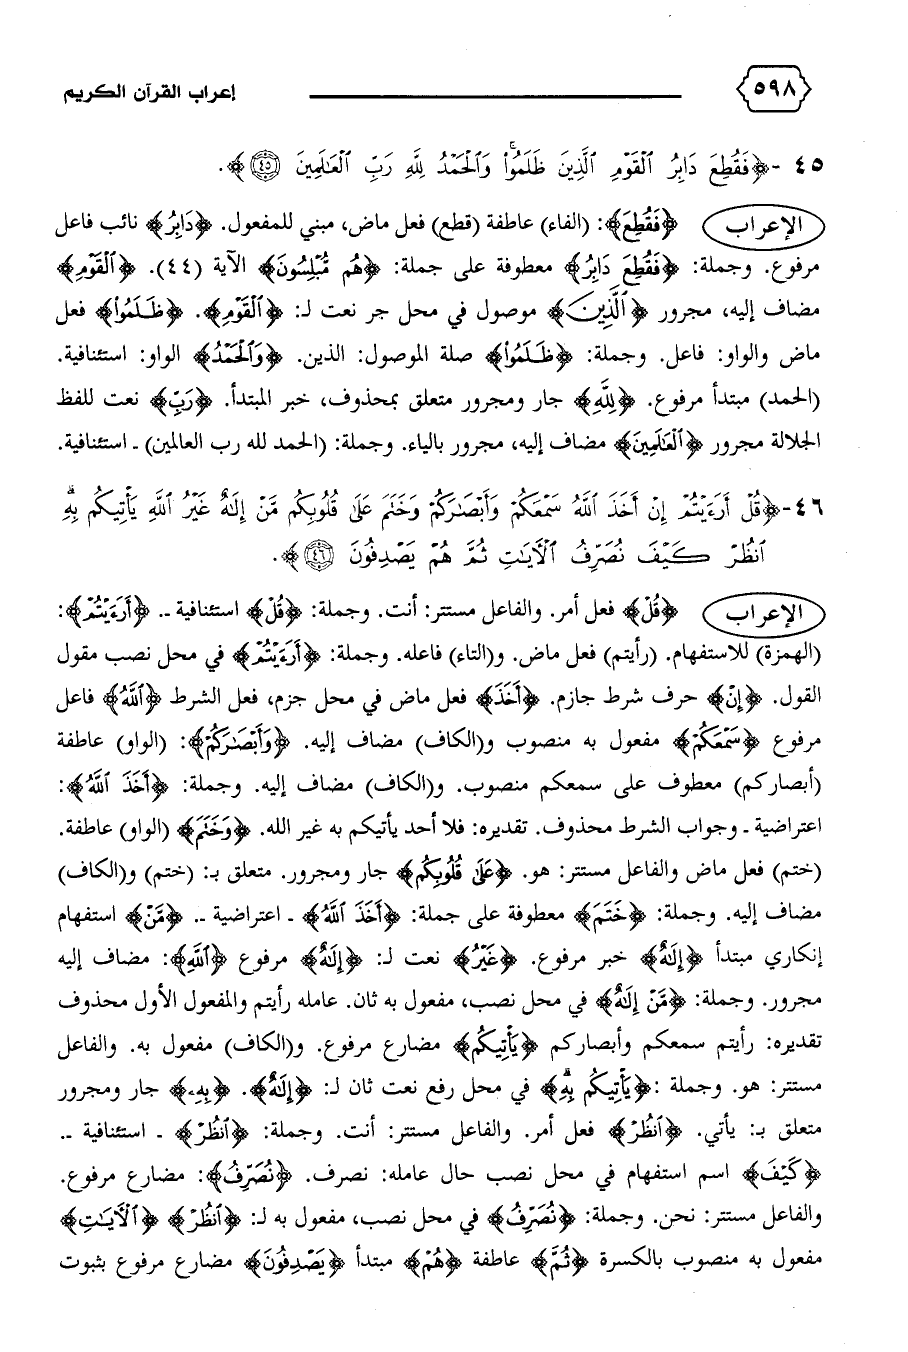 ٥٩٨
إعراب القرآن الكريم
٤٥ -﴿فَقُطِعَ دَابِرُ ٱلْقَوْمِ ٱلَّذِينَ ظَلَمُوا۟ ۚ وَٱلْحَمْدُ لِلَّهِ رَبِّ ٱلْعَـٰلَمِينَ ۝٤٥﴾.
الإعراب ﴿فَقُطِعَ﴾: (الفاء) عاطفة (قطع) فعل ماض، مبني للمفعول. ﴿دَابِرُ﴾ نائب فاعل
مرفوع. وجملة: ﴿فَقُطِعَ دَابِرُ﴾ معطوفة على جملة: ﴿هُم مُّبْلِسُونَ﴾ الآية (٤٤). ﴿ٱلْقَوْمِ﴾
مضاف إليه، مجرور ﴿ٱلَّذِينَ﴾ موصول في محل جر نعت لـ: ﴿ٱلْقَوْمِ﴾. ﴿ظَلَمُوا۟﴾ فعل
ماض والواو: فاعل. وجملة: ﴿ظَلَمُوا۟﴾ صلة الموصول: الذين. ﴿وَٱلْحَمْدُ﴾ الواو: استئنافية.
(الحمد) مبتدأ مرفوع. ﴿لِلَّهِ﴾ جار ومجرور متعلق بمحذوف، خبر المبتدأ. ﴿رَبِّ﴾ نعت للفظ
الجلالة مجرور ﴿ٱلْعَـٰلَمِينَ﴾ مضاف إليه، مجرور بالياء. وجملة: (الحمد لله رب العالمين) ـ استئنافية.
٤٦-﴿قُلْ أَرَءَيْتُمْ إِنْ أَخَذَ ٱللَّهُ سَمْعَكُمْ وَأَبْصَـٰرَكُمْ وَخَتَمَ عَلَىٰ قُلُوبِكُم مَّنْ إِلَـٰهٌ غَيْرُ ٱللَّهِ يَأْتِيكُم بِهِ ۗ
ٱنظُرْ كَيْفَ نُصَرِّفُ ٱلْـَٔايَـٰتِ ثُمَّ هُمْ يَصْدِفُونَ ۝٤٦﴾.
الإعراب ﴿قُلْ﴾ فعل أمر. والفاعل مستتر: أنت. وجملة: ﴿قُلْ﴾ استئنافية ـ. ﴿أَرَءَيْتُمْ﴾:
(الهمزة) للاستفهام. (رأيتم) فعل ماض. و(التاء) فاعله. وجملة: ﴿أَرَءَيْتُمْ﴾ في محل نصب مقول
القول. ﴿إِنْ﴾ حرف شرط جازم. ﴿أَخَذَ﴾ فعل ماض في محل جزم، فعل الشرط ﴿ٱللَّهُ﴾ فاعل
مرفوع ﴿سَمْعَكُمْ﴾ مفعول به منصوب و(الكاف) مضاف إليه. ﴿وَأَبْصَـٰرَكُمْ﴾: (الواو) عاطفة
(أبصاركم) معطوف على سمعكم منصوب. و(الكاف) مضاف إليه. وجملة: ﴿أَخَذَ ٱللَّهُ﴾:
اعتراضية ـ وجواب الشرط محذوف. تقديره: فلا أحد يأتيكم به غير الله. ﴿وَخَتَمَ﴾ (الواو) عاطفة.
(ختم) فعل ماض والفاعل مستتر: هو. ﴿عَلَىٰ قُلُوبِكُم﴾ جار ومجرور. متعلق بـ: (ختم) و(الكاف)
مضاف إليه. وجملة: ﴿خَتَمَ﴾ معطوفة على جملة: ﴿أَخَذَ ٱللَّهُ﴾ ـ اعتراضية ـ. ﴿مَّنْ﴾ استفهام
إنكاري مبتدأ ﴿إِلَـٰهٌ﴾ خبر مرفوع. ﴿غَيْرُ﴾ نعت لـ: ﴿إِلَـٰهٌ﴾ مرفوع ﴿ٱللَّهِ﴾: مضاف إليه
مجرور. وجملة: ﴿مَّنْ إِلَـٰهٌ﴾ في محل نصب، مفعول به ثان. عامله رأيتم والمفعول الأول محذوف
تقديره: رأيتم سمعكم وأبصاركم ﴿يَأْتِيكُم﴾ مضارع مرفوع. و(الكاف) مفعول به. والفاعل
مستتر: هو. وجملة :﴿يَأْتِيكُم بِهِ ۗ﴾ في محل رفع نعت ثان لـ: ﴿إِلَـٰهٌ﴾. ﴿بِهِۦ﴾ جار ومجرور
متعلق بـ: يأتي. ﴿ٱنظُرْ﴾ فعل أمر. والفاعل مستتر: أنت. وجملة: ﴿ٱنظُرْ﴾ ـ استئنافية ـ.
﴿كَيْفَ﴾ اسم استفهام في محل نصب حال عامله: نصرف. ﴿نُصَرِّفُ﴾: مضارع مرفوع.
والفاعل مستتر: نحن. وجملة: ﴿نُصَرِّفُ﴾ في محل نصب، مفعول به لـ: ﴿ٱنظُرْ﴾ ﴿ٱلْـَٔايَـٰتِ﴾
مفعول به منصوب بالكسرة ﴿ثُمَّ﴾ عاطفة ﴿هُمْ﴾ مبتدأ ﴿يَصْدِفُونَ﴾ مضارع مرفوع بثبوت